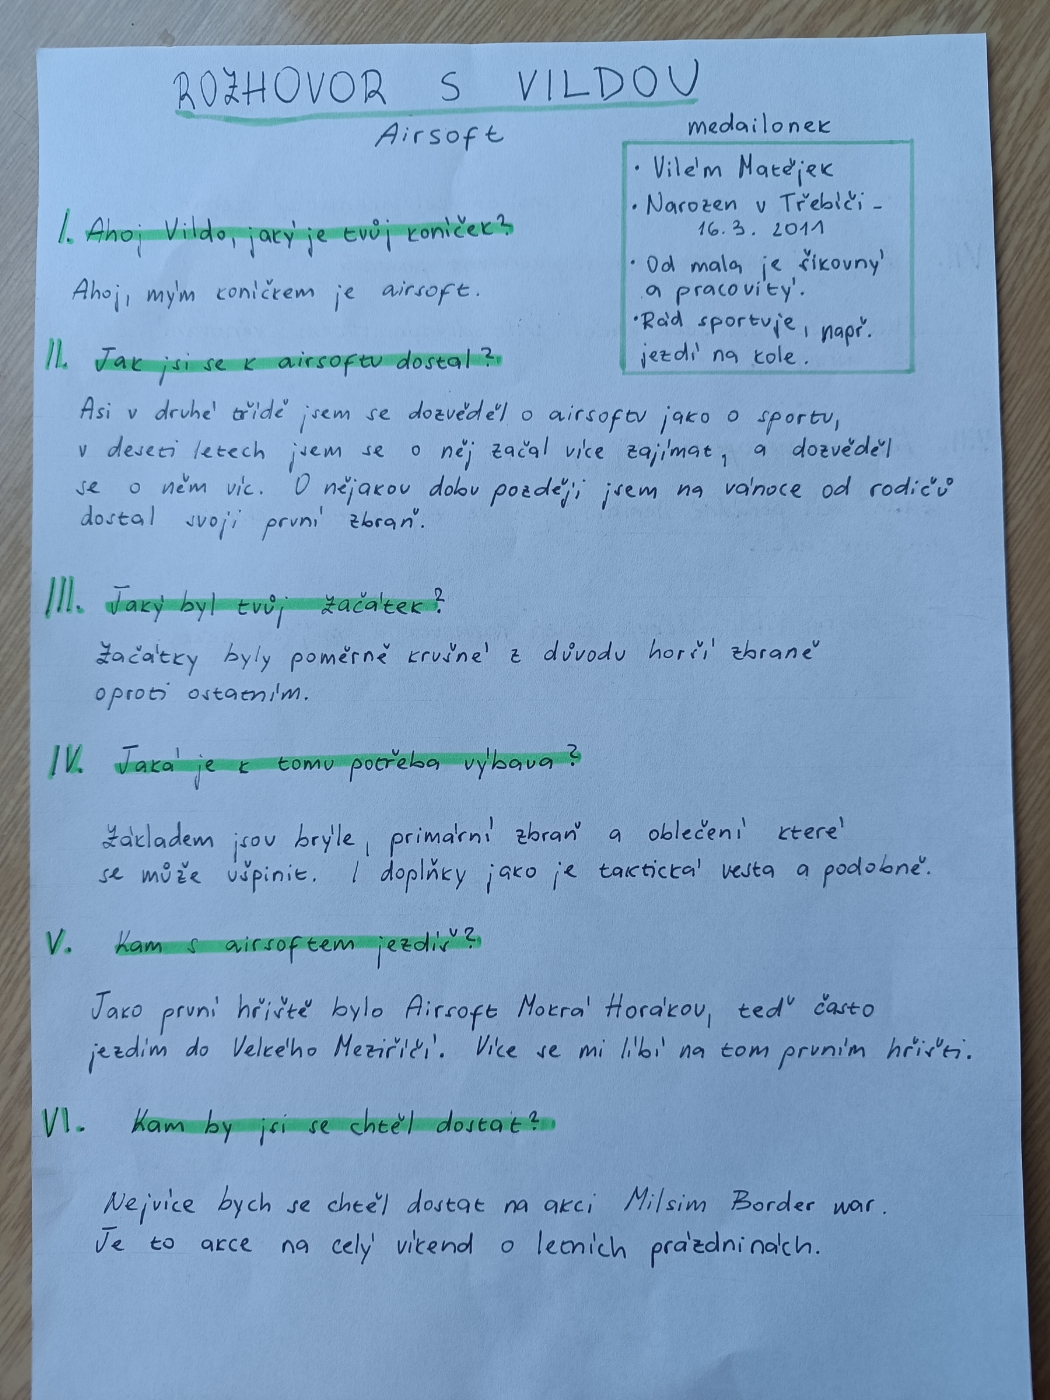 ROZHOVOR S VILDOU
Airsoft
medailonek
• Vilém Matějek
• Narozen v Třebíči -
16.3. 2011
• Od mala je šikovný
a pracovitý.
• Rád sportuje, např.
jezdí na kole.
I. Ahoj Vildo, jaký je tvůj koníček?
Ahoj, mým koníčkem je airsoft.
II. Jak jsi se k airsoftu dostal?
Asi v druhé třídě jsem se dozvěděl o airsoftu jako o sportu,
v deseti letech jsem se o něj začal více zajímat, a dozvěděl
se o něm víc. O nějakou dobu pozděj́i jsem na vánoce od rodičů
dostal svoji první zbraň.
III. Jaký byl tvůj začátek?
Začátky byly poměrně krušné z důvodu horší zbraně
oproti ostatním.
IV. Jaká je k tomu potřeba výbava?
Základem jsou brýle, primární zbraň a oblečení které
se může ušpinit. I doplňky jako je taktická vesta a podobně.
V. Kam s airsoftem jezdíš?
Jako první hřiště bylo Airsoft Mokrá Horákov, teď často
jezdím do Velkého Meziříčí. Více se mi líbí na tom prvním hřišti.
VI. Kam by jsi se chtěl dostat?
Nejvíce bych se chtěl dostat na akci Milsim Border war.
Je to akce na celý víkend o letních prázdninách.